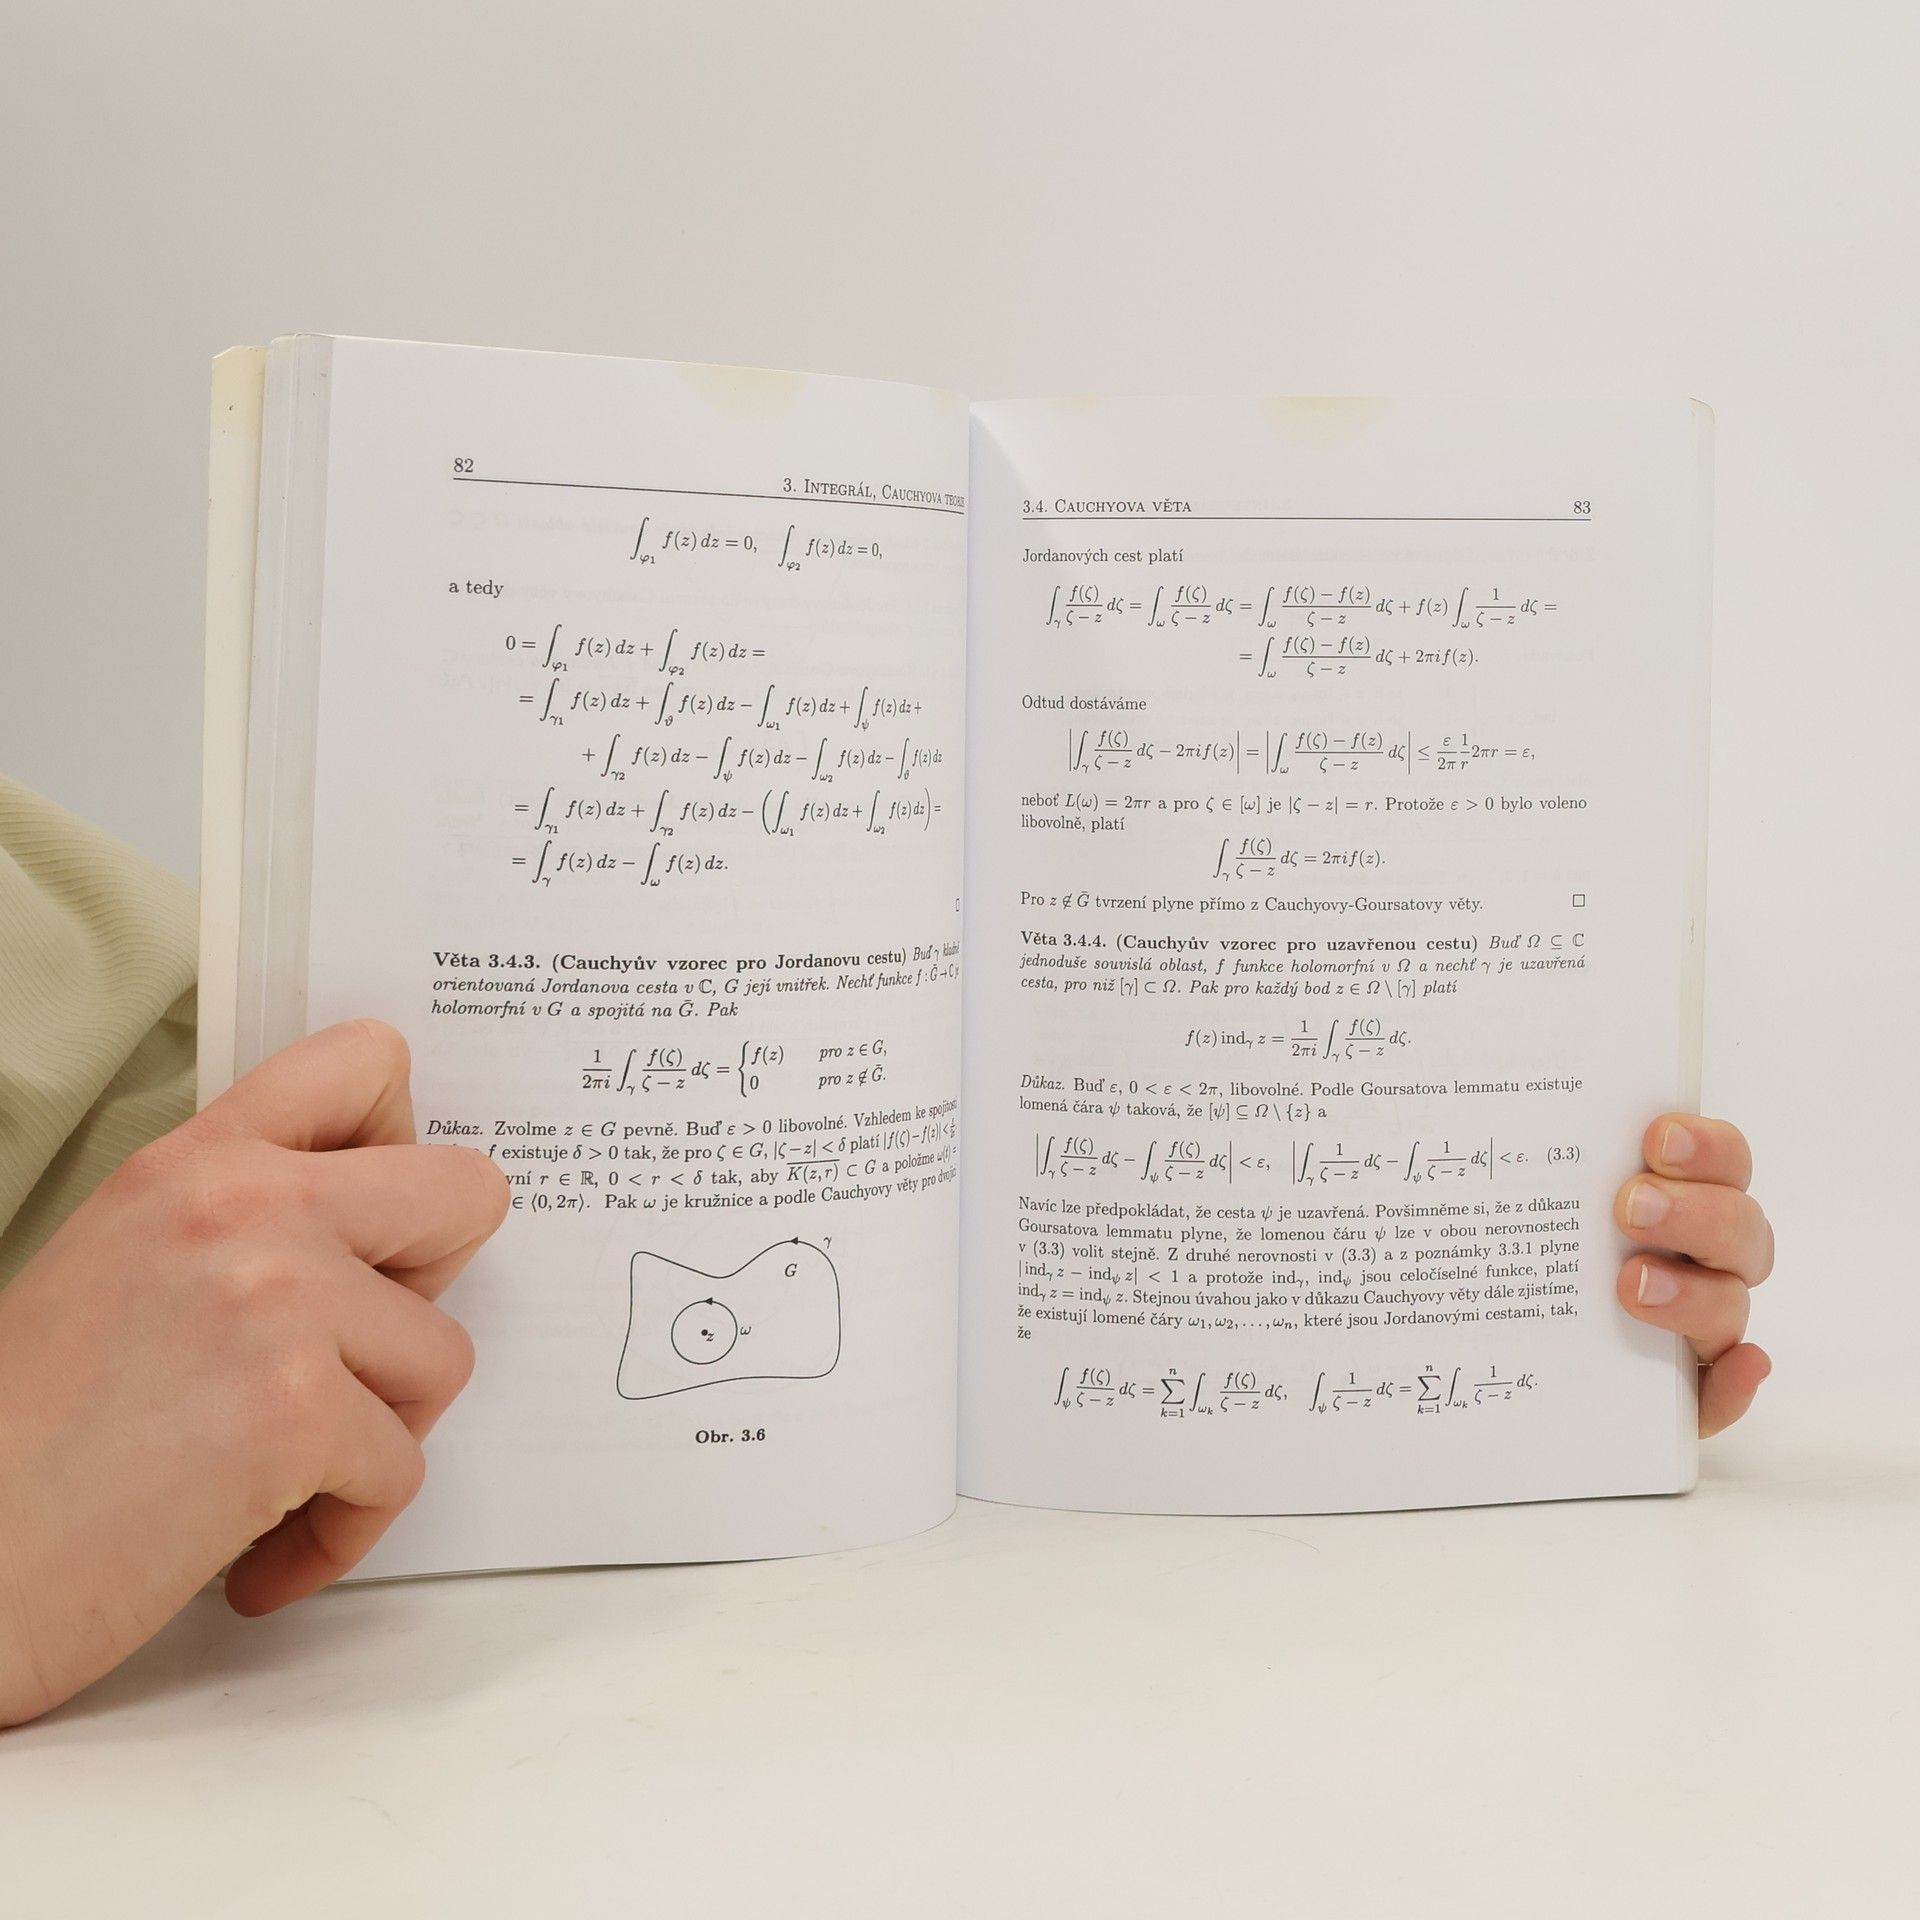 82
3. Integrál, Cauchyova teorie
∫_{φ₁} f(z) dz = 0, ∫_{φ₂} f(z) dz = 0,
a tedy
0 = ∫_{φ₁} f(z) dz + ∫_{φ₂} f(z) dz =
= ∫_{γ₁} f(z) dz + ∫_ϑ f(z) dz − ∫_{ω₁} f(z) dz + ∫_ψ f(z) dz +
+ ∫_{γ₂} f(z) dz − ∫_ψ f(z) dz − ∫_{ω₂} f(z) dz − ∫_ϑ f(z) dz
= ∫_{γ₁} f(z) dz + ∫_{γ₂} f(z) dz − (∫_{ω₁} f(z) dz + ∫_{ω₂} f(z) dz) =
= ∫_γ f(z) dz − ∫_ω f(z) dz.
□
Věta 3.4.3. (Cauchyův vzorec pro Jordanovu cestu) Buď γ kladně
orientovaná Jordanova cesta v ℂ, G její vnitřek. Nechť funkce f : Ḡ → ℂ je
holomorfní v G a spojitá na Ḡ. Pak
1/(2πi) ∫_γ f(ζ)/(ζ − z) dζ = { f(z) pro z ∈ G,
0 pro z ∉ Ḡ.
Důkaz. Zvolme z ∈ G pevně. Buď ε > 0 libovolné. Vzhledem ke spojitosti
f existuje δ > 0 tak, že pro ζ ∈ G, |ζ − z| < δ platí |f(ζ) − f(z)| <
r ∈ ℝ, 0 < r < δ tak, aby K(z, r) ⊂ G a položme ω(t) =
∈ ⟨0, 2π⟩. Pak ω je kružnice a podle Cauchyovy věty pro dvojici
γ
G
z
ω
Obr. 3.6
3.4. Cauchyova věta 83
Jordanových cest platí
∫_γ f(ζ)/(ζ − z) dζ = ∫_ω f(ζ)/(ζ − z) dζ = ∫_ω (f(ζ) − f(z))/(ζ − z) dζ + f(z) ∫_ω 1/(ζ − z) dζ =
= ∫_ω (f(ζ) − f(z))/(ζ − z) dζ + 2πif(z).
Odtud dostáváme
|∫_γ f(ζ)/(ζ − z) dζ − 2πif(z)| = |∫_ω (f(ζ) − f(z))/(ζ − z) dζ| ≤ ε/(2π) 1/r 2πr = ε,
neboť L(ω) = 2πr a pro ζ ∈ [ω] je |ζ − z| = r. Protože ε > 0 bylo voleno
libovolně, platí
∫_γ f(ζ)/(ζ − z) dζ = 2πif(z).
Pro z ∉ Ḡ tvrzení plyne přímo z Cauchyovy-Goursatovy věty. □
Věta 3.4.4. (Cauchyův vzorec pro uzavřenou cestu) Buď Ω ⊆ ℂ
jednoduše souvislá oblast, f funkce holomorfní v Ω a nechť γ je uzavřená
cesta, pro niž [γ] ⊂ Ω. Pak pro každý bod z ∈ Ω \ [γ] platí
f(z) ind_γ z = 1/(2πi) ∫_γ f(ζ)/(ζ − z) dζ.
Důkaz. Buď ε, 0 < ε < 2π, libovolné. Podle Goursatova lemmatu existuje
lomená čára ψ taková, že [ψ] ⊆ Ω \ {z} a
|∫_γ f(ζ)/(ζ − z) dζ − ∫_ψ f(ζ)/(ζ − z) dζ| < ε, |∫_γ 1/(ζ − z) dζ − ∫_ψ 1/(ζ − z) dζ| < ε. (3.3)
Navíc lze předpokládat, že cesta ψ je uzavřená. Povšimněme si, že z důkazu
Goursatova lemmatu plyne, že lomenou čáru ψ lze v obou nerovnostech
v (3.3) volit stejně. Z druhé nerovnosti v (3.3) a z poznámky 3.3.1 plyne
|ind_γ z − ind_ψ z| < 1 a protože ind_γ, ind_ψ jsou celočíselné funkce, platí
ind_γ z = ind_ψ z. Stejnou úvahou jako v důkazu Cauchyovy věty dále zjistíme,
že existují lomené čáry ω₁, ω₂, . . . , ωₙ, které jsou Jordanovými cestami, tak,
že
∫_ψ f(ζ)/(ζ − z) dζ = ∑_{k=1}^{n} ∫_{ω_k} f(ζ)/(ζ − z) dζ, ∫_ψ 1/(ζ − z) dζ = ∑_{k=1}^{n} ∫_{ω_k} 1/(ζ − z) dζ.